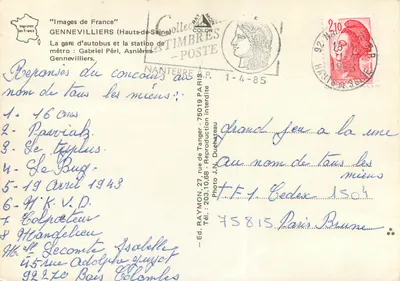 "Images de France"
GENNEVILLIERS (Hauts-de-Seine)
La gare d'autobus et la station de
métro : Gabriel Péri, Asnières
Gennevilliers.
Réponses du concours au
nom de tous les miens:
1- 16 ans
2-
3- Le typhus
4- Le Bug
5- 19 Avril 1943
6- N.K.V.D.
7- Colporteur
8- Mandelieu
Lecomte Isabelle
45 rue Adolphe Guyot
92270 Bois Colombes
Ed. RAYMON, 27, rue de Tanger - 75019 PARIS
Tél. : 203.10.68 - Reproduction interdite
Photo J.N. Duchateau
COLOR
Collec
TIMBRES
-POSTE
NANTERRE R.P.
1-4-85
2,10
92 NANTERRE R.P.
HAUTS DE SEINE
grand jeu a la une
au nom de tous les
miens
TF1 Cedex 1504
75815 Paris Brune